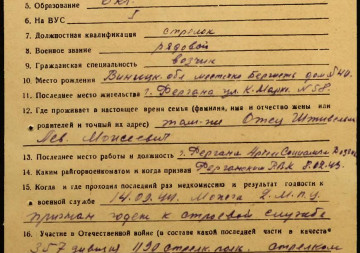 5. Образование 6кл.
6. На ВУС 1
7. Должностная квалификация стрелок
8. Военное звание рядовой
9. Гражданская специальность возчик
10. Место рождения Винницк. обл местечко Бершадь дом № 40
11. Последнее место жительства г. Фергана ул. К. Маркс. № 58.
12. Где проживает в настоящее время семья (фамилия, имя и отчество жены или
родителей и точный их адрес) там-же Отец
Лев. Моисеевич
13. Последнее место работы и должность г. Фергана Артель
14. Каким райгорвоенкоматом и когда призван Ферганским РВК 8.02.43.
15. Когда и где проходил последний раз медкомиссию и результат годности к
военной службе 14.02.44.
признан годен к строевой службе
16. Участие в Отечественной войне (в составе какой последней части и в качестве
357 дивизия 1190 стрелк. полк. стрелком